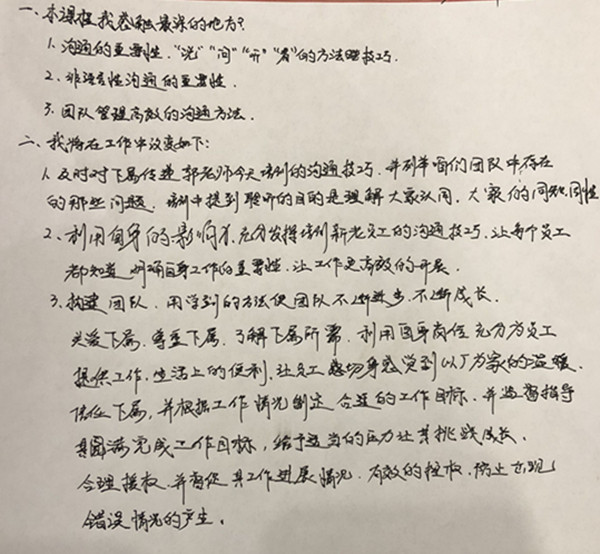 一、本课程我感触最深的地方?
1. 沟通的重要性."说""问""听""看"的方法跟技巧.
2. 非语言性沟通的重要性.
3. 团队管理高效的沟通方法.
二、我将在工作中改变如下:
1. 及时对下属传递郭老师今天培训的沟通技巧.并列举咱们团队中存在
的那些问题.培训中提到聆听的目的是理解大家认同.大家的同知同性
2. 利用自身的影响力.充分发挥培训新老员工的沟通技巧.让每个员工
都知道明确自身工作的重要性.让工作更高效的开展.
3. 构建团队.用学到的方法使团队不断进步.不断成长.
关爱下属.尊重下属.了解下属所需.利用自身岗位充分为员工
提供工作,生活上的便利,让员工感切身感觉到以厂为家的温暖.
信任下属,并根据工作情况制定合适的工作目标.并监督指导
其圆满完成工作目标,给予适当的压力让其挑战成长.
合理授权.并督促其工作进展情况.有效的授权.防止出现
错误情况的产生.